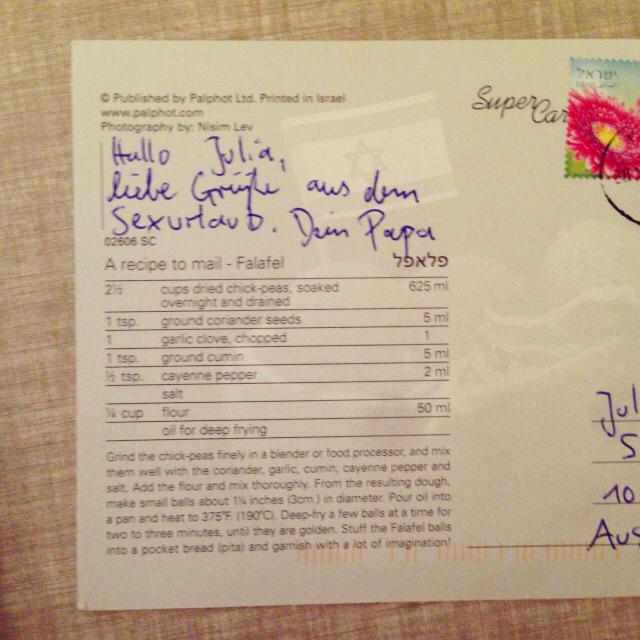 © Published by Palphot Ltd. Printed in Israel
www.palphot.com
Photography by: Nisim Lev
Hallo Julia,
liebe Grüße aus dem
Sexurlaub. Dein Papa
02606 SC
A recipe to mail - Falafel פלאפל
2½ cups dried chick-peas, soaked 625 ml
overnight and drained
1 tsp. ground coriander seeds 5 ml
1 garlic clove, chopped 1
1 tsp. ground cumin 5 ml
½ tsp. cayenne pepper 2 ml
salt
¼ cup flour 50 ml
oil for deep frying
Grind the chick-peas finely in a blender or food processor, and mix
them well with the coriander, garlic, cumin, cayenne pepper and
salt. Add the flour and mix thoroughly. From the resulting dough,
make small balls about 1¼ inches (3cm.) in diameter. Pour oil into
a pan and heat to 375°F. (190°C). Deep-fry a few balls at a time for
two to three minutes, until they are golden. Stuff the Falafel balls
into a pocket bread (pita) and garnish with a lot of imagination!
Super Car
ישראל
Jul
S
10
Aus